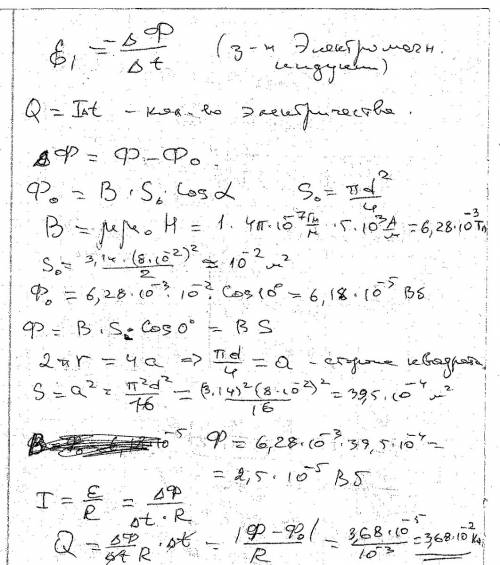 ℰ₁ = -ΔΦ/Δt (з-н Электромагн. индукт)
Q = IΔt - кол-во электричества.
ΔΦ = Φ - Φ₀
Φ₀ = B · S₀ · cosα S₀ = πd²/4
B = μμ₀H = 1 · 4π·10⁻⁷ Гн/м · 5·10³ А/м = 6,28·10⁻³ Тл
S₀ = 3,14·(8·10⁻²)²/2 = 10⁻² м²
Φ₀ = 6,28·10⁻³ · 10⁻² · cos10° = 6,18·10⁻⁵ Вб
Φ = B · S · cos0° = BS
2πr = 4a => πd/4 = a - сторона квадрата
S = a² = π²d²/16 = (3,14)²(8·10⁻²)²/16 = 39,5·10⁻⁴ м²
Φ = 6,28·10⁻³ · 39,5·10⁻⁴ =
= 2,5·10⁻⁵ Вб
I = ℰ/R = ΔΦ/Δt·R
Q = ΔΦ/ΔtR · Δt = |Φ - Φ₀|/R = 3,68·10⁻⁵/10⁻³ = 3,68·10⁻² Кл